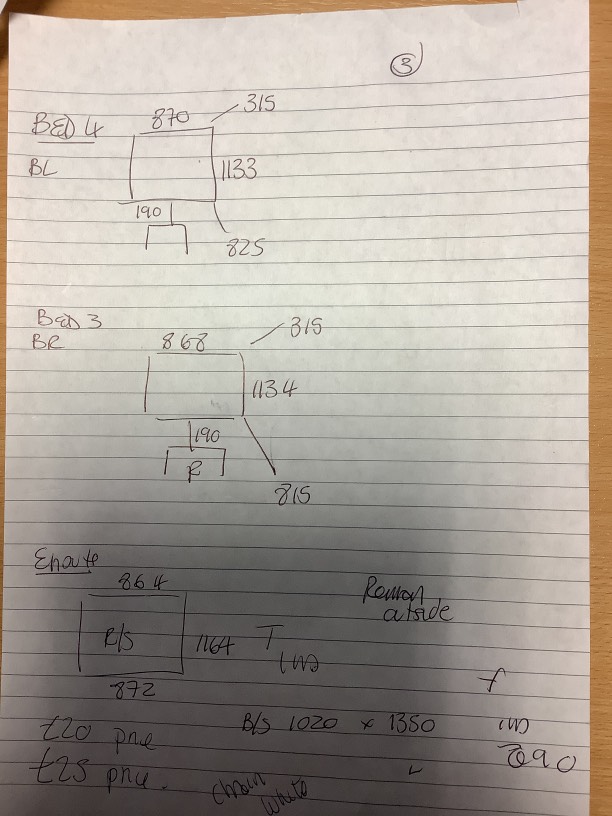 3
870 315
BED 4
BL 1133
190
825
BED 3 315
BR 868
1134
190
R
815
Ensuite
864
outside
R/S 1164 T
(W)
872
B/S 1020 x 1350 (W)
£20 price
£25 price. chain
white